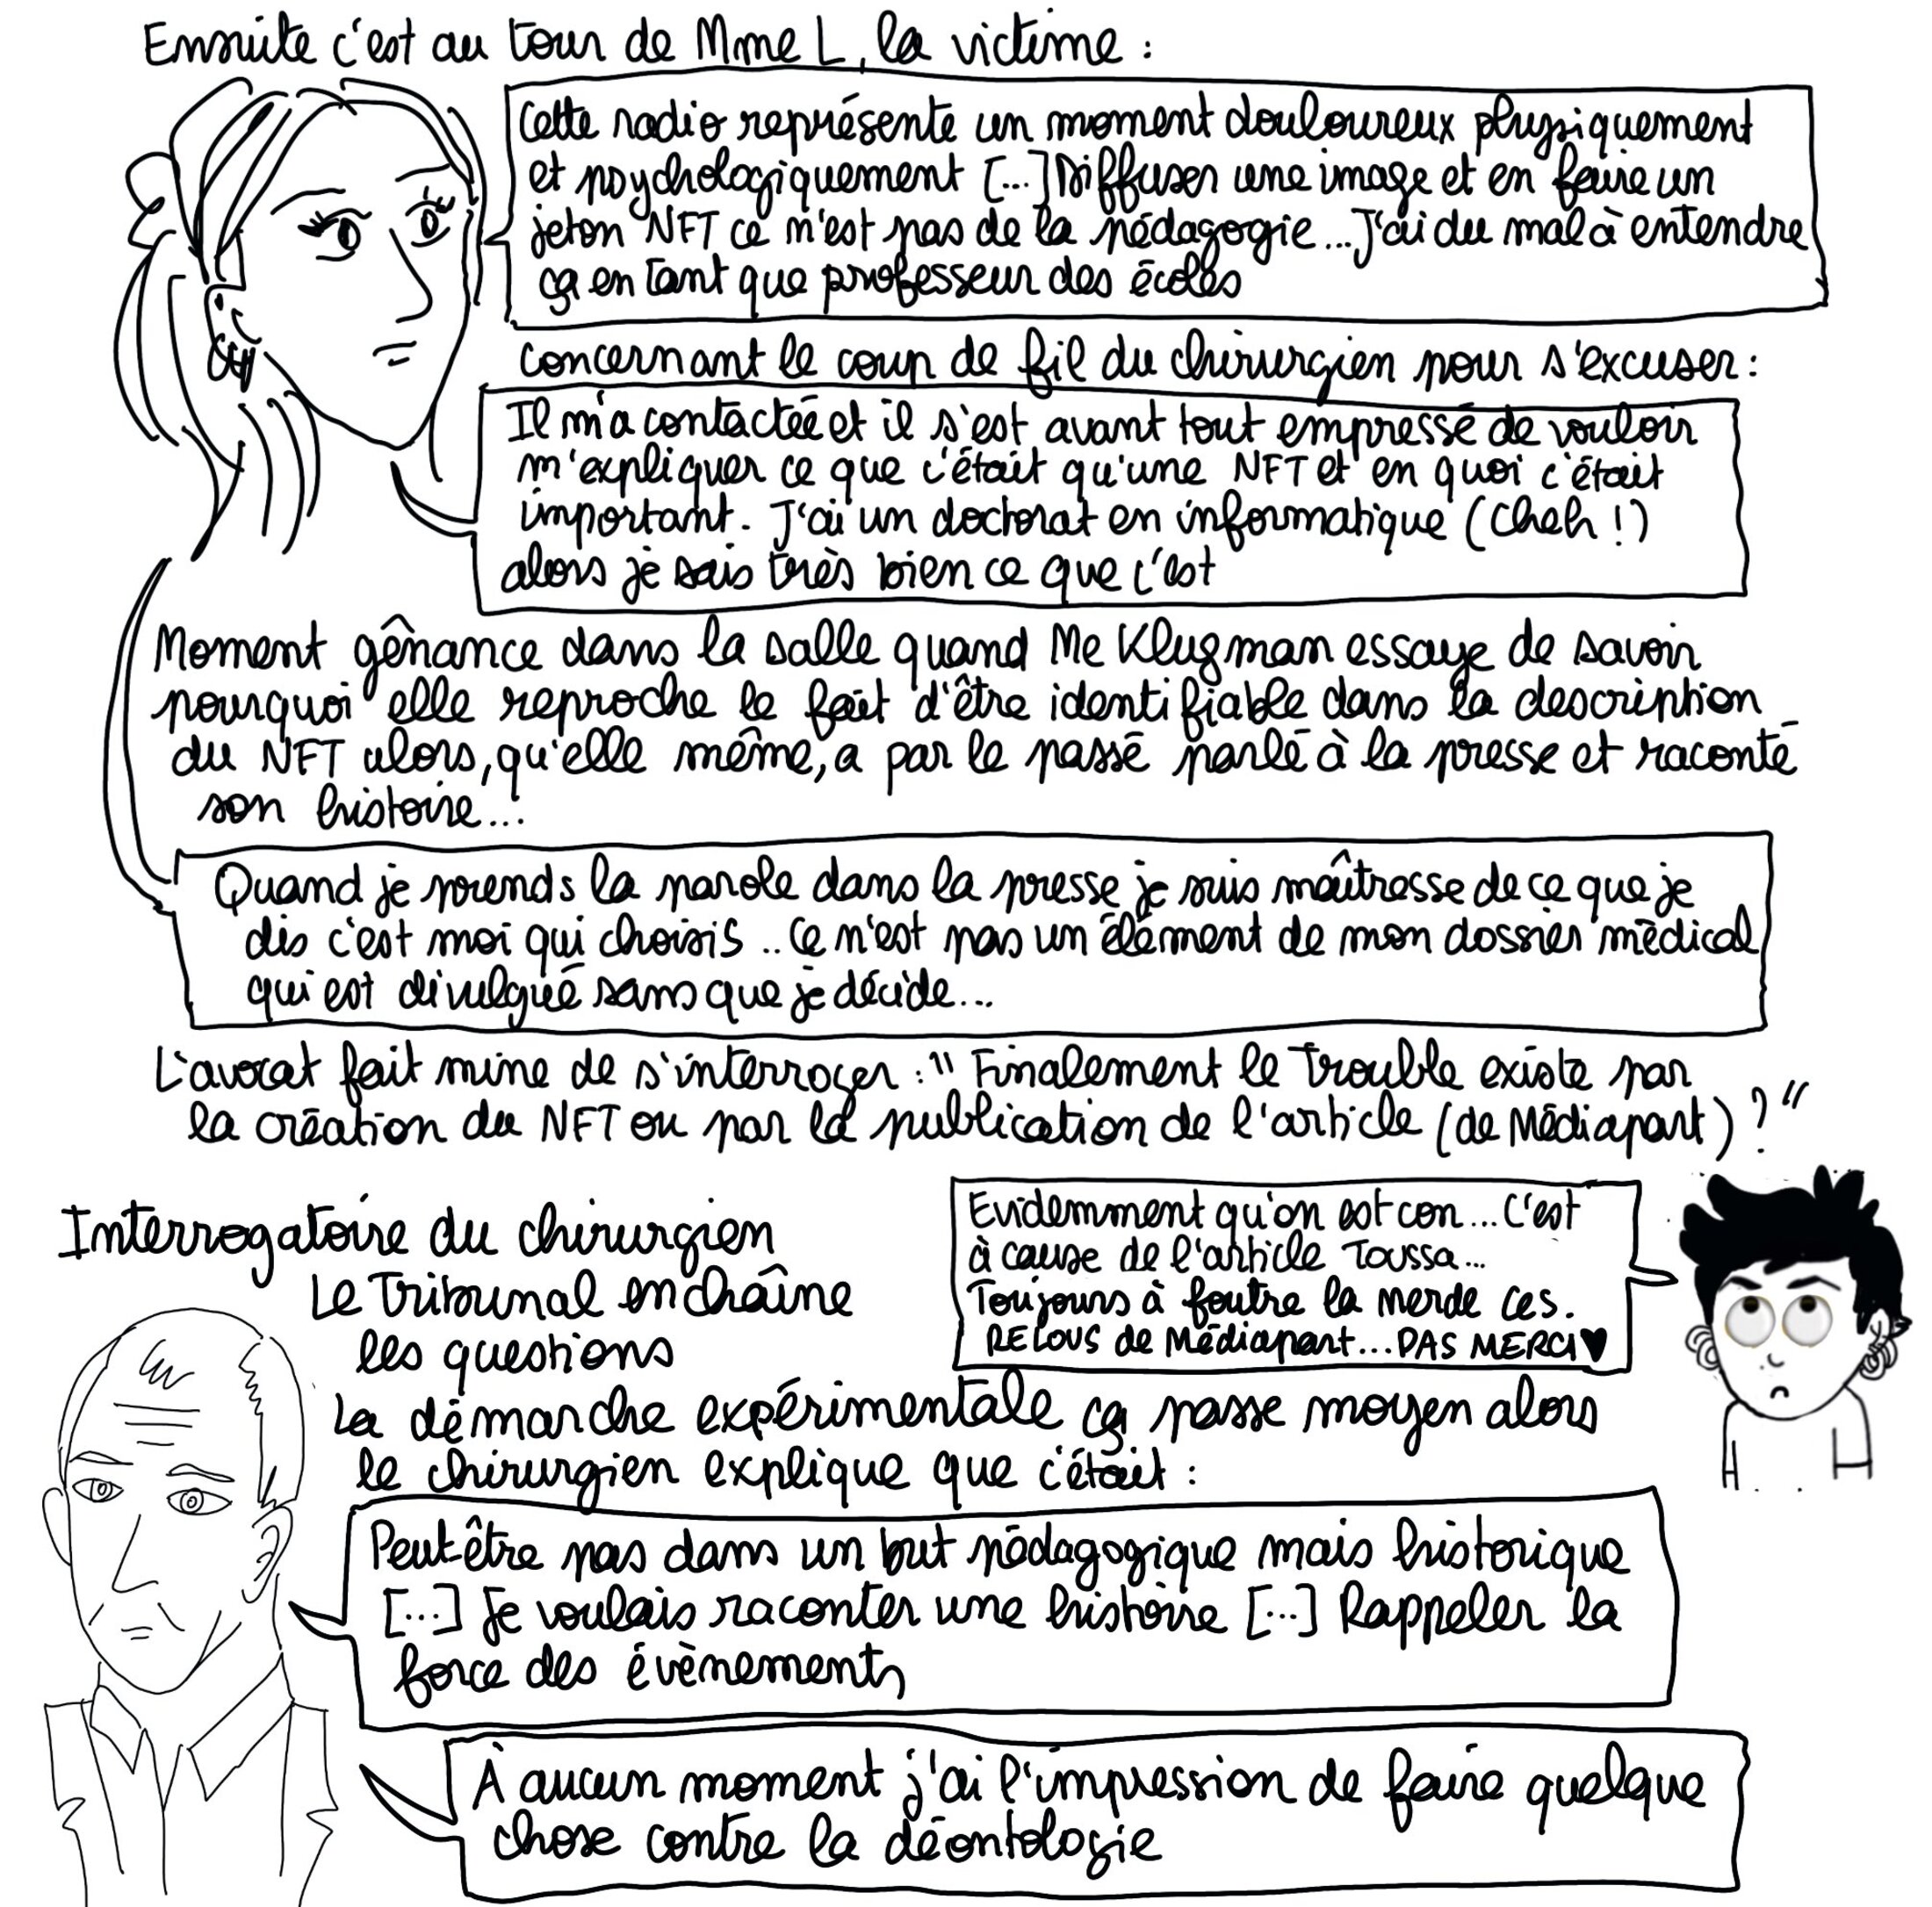 Ensuite c'est au tour de Mme L, la victime :
Cette radio représente un moment douloureux physiquement
et psychologiquement [...] Diffuser une image et en faire un
jeton NFT ce n'est pas de la pédagogie... J'ai du mal à entendre
ça en tant que professeur des écoles
Concernant le coup de fil du chirurgien pour s'excuser :
Il m'a contactée et il s'est avant tout empressé de vouloir
m'expliquer ce que c'était qu'une NFT et en quoi c'était
important. J'ai un doctorat en informatique (Cheh !)
alors je sais très bien ce que c'est
Moment gênance dans la salle quand Me Klugman essaye de savoir
pourquoi elle reproche le fait d'être identifiable dans la description
du NFT alors, qu'elle même, a par le passé parlé à la presse et raconté
son histoire...
Quand je prends la parole dans la presse je suis maîtresse de ce que je
dis c'est moi qui choisis .. Ce n'est pas un élément de mon dossier médical
qui est divulgué sans que je décide...
L'avocat fait mine de s'interroger : " Finalement le trouble existe par
la création du NFT ou par la publication de l'article (de Médiapart) ? "
Evidemment qu'on est con... C'est
à cause de l'article Toussa...
Toujours à foutre la merde ces.
RELOUS de Médiapart... PAS MERCI ♥
Interrogatoire du chirurgien
Le Tribunal enchaîne
les questions
La démarche expérimentale ça passe moyen alors
le chirurgien explique que c'était :
Peut-être pas dans un but pédagogique mais historique
[...] Je voulais raconter une histoire [...] Rappeler la
force des évènements
À aucun moment j'ai l'impression de faire quelque
chose contre la déontologie